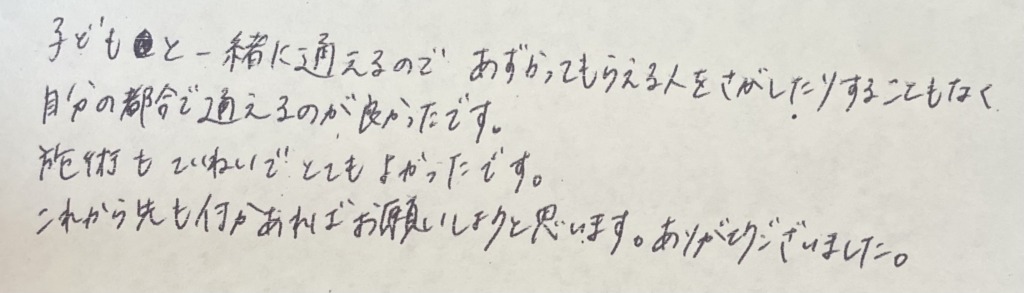 子どもと一緒に通えるので あずかってもらえる人をさがしたりすることもなく
自分の都合で通えるのが良かったです。
施術も ていねいで とても よかったです。
これから先も何かあればお願いしようと思います。ありがとうございました。